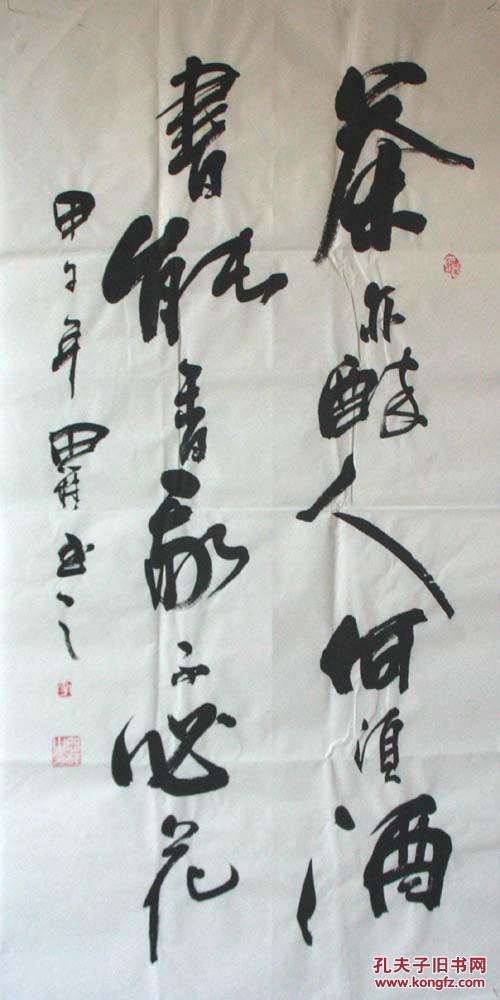 茶亦醉人何須酒
書能香我不必花
甲午年 田 书之
孔夫子旧书网
www.kongfz.com